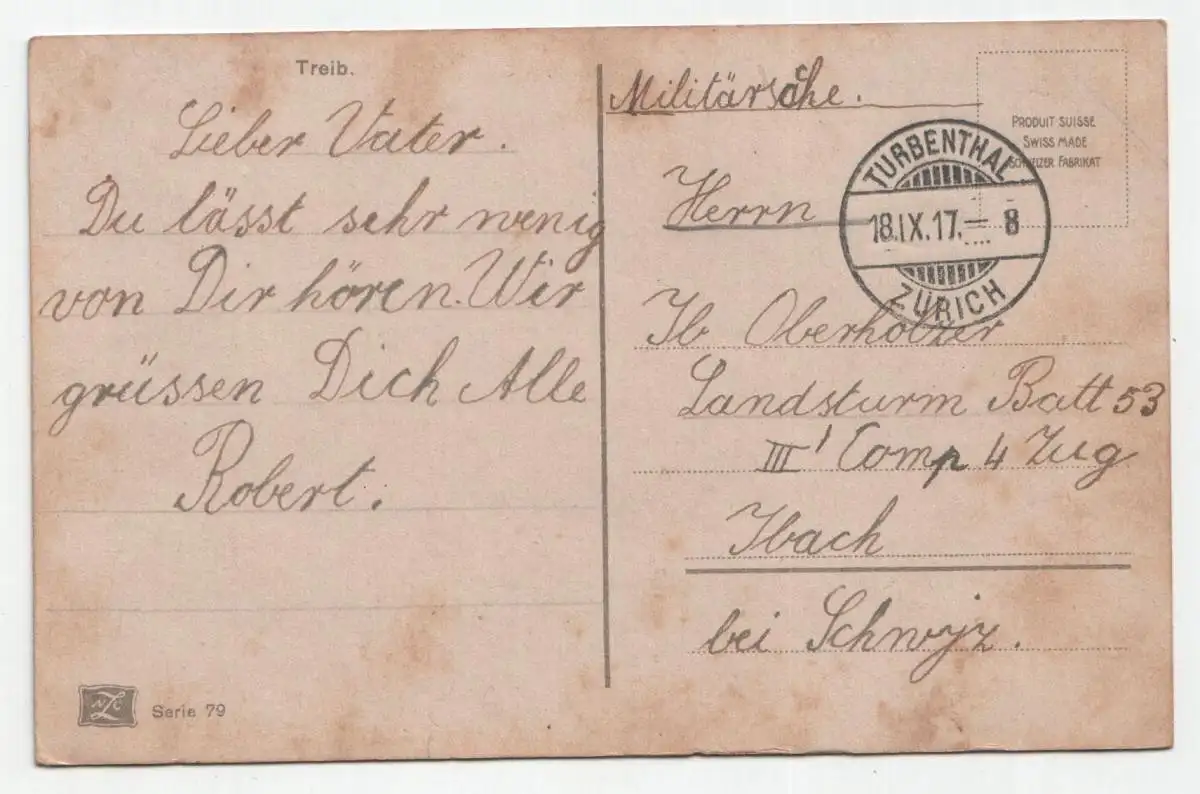 Treib.
Lieber Vater.
Du lässt sehr wenig
von Dir hören. Wir
grüssen Dich Alle
Robert.
Serie 79
Militärsche.
PRODUIT SUISSE
SWISS MADE
SCHWEIZER FABRIKAT
TURBENTHAL
18.IX.17.— 8
ZÜRICH
Herrn
Jb Oberholzer
Landsturm Batt 53
III' Comp 4 Zug
Ibach
bei Schwyz.